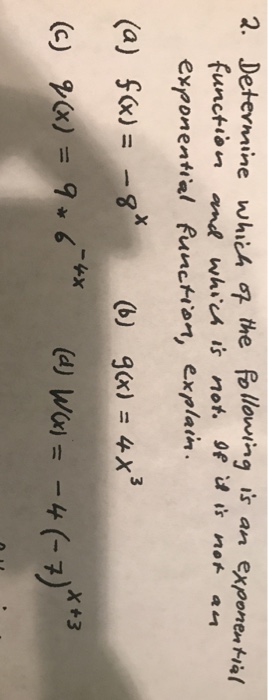 2. Determine which of the following is an exponential
function and which is not. If it is not an
exponential function, explain.
(a) f(x) = -8^x (b) g(x) = 4x^3
(c) q(x) = 9 * 6^-4x (d) W(x) = -4(-7)^x+3